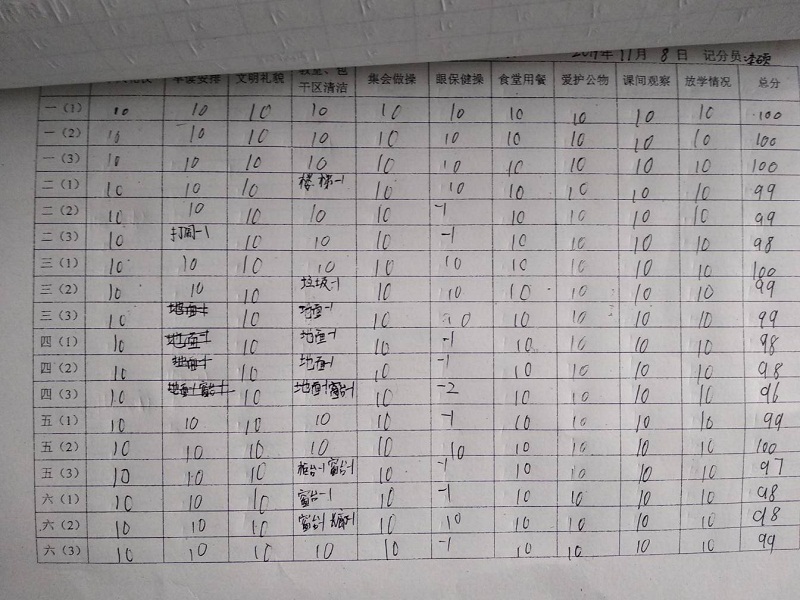 11月8日 记分员
文明礼貌 干区清洁 集会做操 眼保健操 食堂用餐 爱护公物 课间观察 放学情况 总分
一（1） 10 10 10 10 10 10 10 10 10 10 100
一（2） 10 10 10 10 10 10 10 10 10 10 100
一（3） 10 10 10 10 10 10 10 10 10 10 100
二（1） 10 10 10 楼梯-1 10 10 10 10 10 10 99
二（2） 10 10 10 10 10 -1 10 10 10 10 99
二（3） 10 -1 10 10 10 -1 10 10 10 10 98
三（1） 10 10 10 10 10 10 10 10 10 10 100
三（2） 10 10 10 垃圾-1 10 10 10 10 10 10 99
三（3） 10 地面-1 10 地面-1 10 10 10 10 10 10 99
四（1） 10 地面-1 10 地面-1 10 -1 10 10 10 10 98
四（2） 10 地面-1 10 地面-1 10 -1 10 10 10 10 98
四（3） 10 地面-1 窗台-1 10 地面-1 窗台-1 10 -2 10 10 10 10 96
五（1） 10 10 10 10 10 -1 10 10 10 10 99
五（2） 10 10 10 10 10 10 10 10 10 10 100
五（3） 10 10 10 柜台-1 窗台-1 10 -1 10 10 10 10 97
六（1） 10 10 10 窗台-1 10 -1 10 10 10 10 98
六（2） 10 10 10 窗台-1 10 10 10 10 10 10 98
六（3） 10 10 10 10 10 -1 10 10 10 10 99